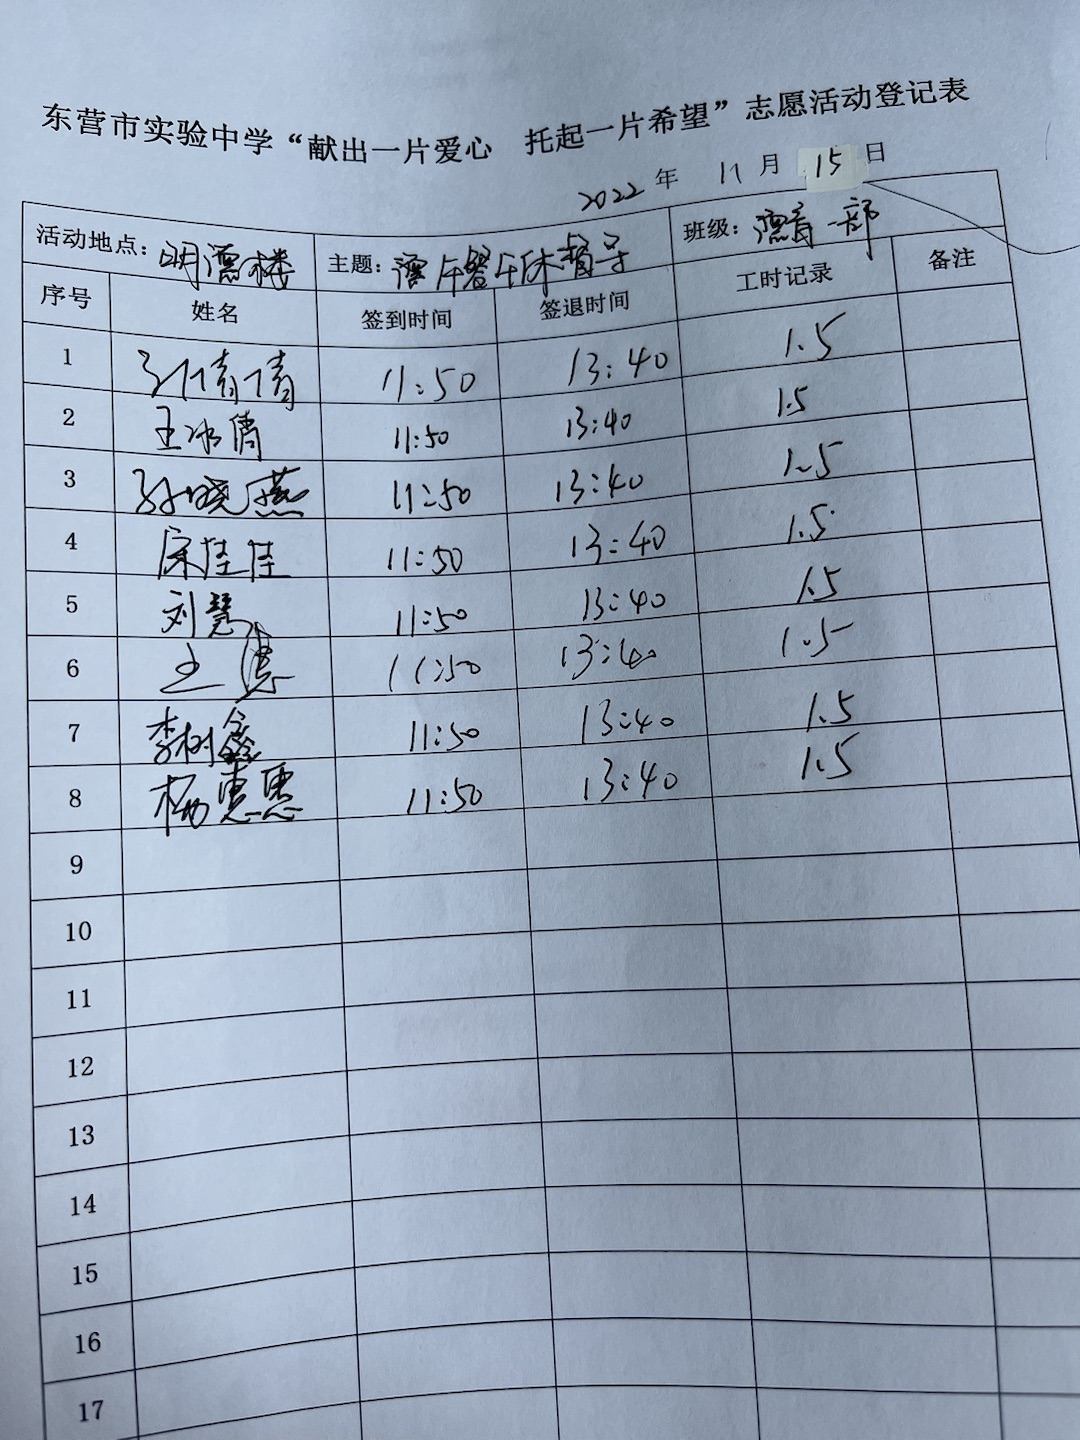 东营市实验中学“献出一片爱心 托起一片希望”志愿活动登记表
2022 年 11 月 15 日
活动地点：明德楼 主题：午餐午休督导 班级：德育一部
序号 姓名 签到时间 签退时间 工时记录 备注
1 孙倩倩 11:50 13:40 1.5
2 王冰倩 11:50 13:40 1.5
3 孙晓燕 11:50 13:40 1.5
4 宋佳佳 11:50 13:40 1.5
5 刘慧 11:50 13:40 1.5
6 王 11:50 13:40 1.5
7 李树鑫 11:50 13:40 1.5
8 杨惠惠 11:50 13:40 1.5
9
10
11
12
13
14
15
16
17